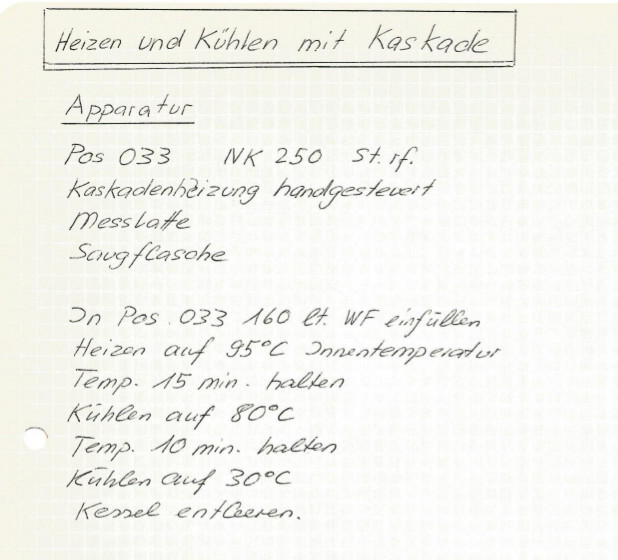 Heizen und Kühlen mit Kaskade
Apparatur
Pos 033 NK 250 St. rf.
Kaskadenheizung handgesteuert
Messlatte
Saugflasche
In Pos. 033 160 lt. WF einfüllen
Heizen auf 95°C Innentemperatur
Temp. 15 min. halten
Kühlen auf 80°C
Temp. 10 min. halten
Kühlen auf 30°C
Kessel entleeren.